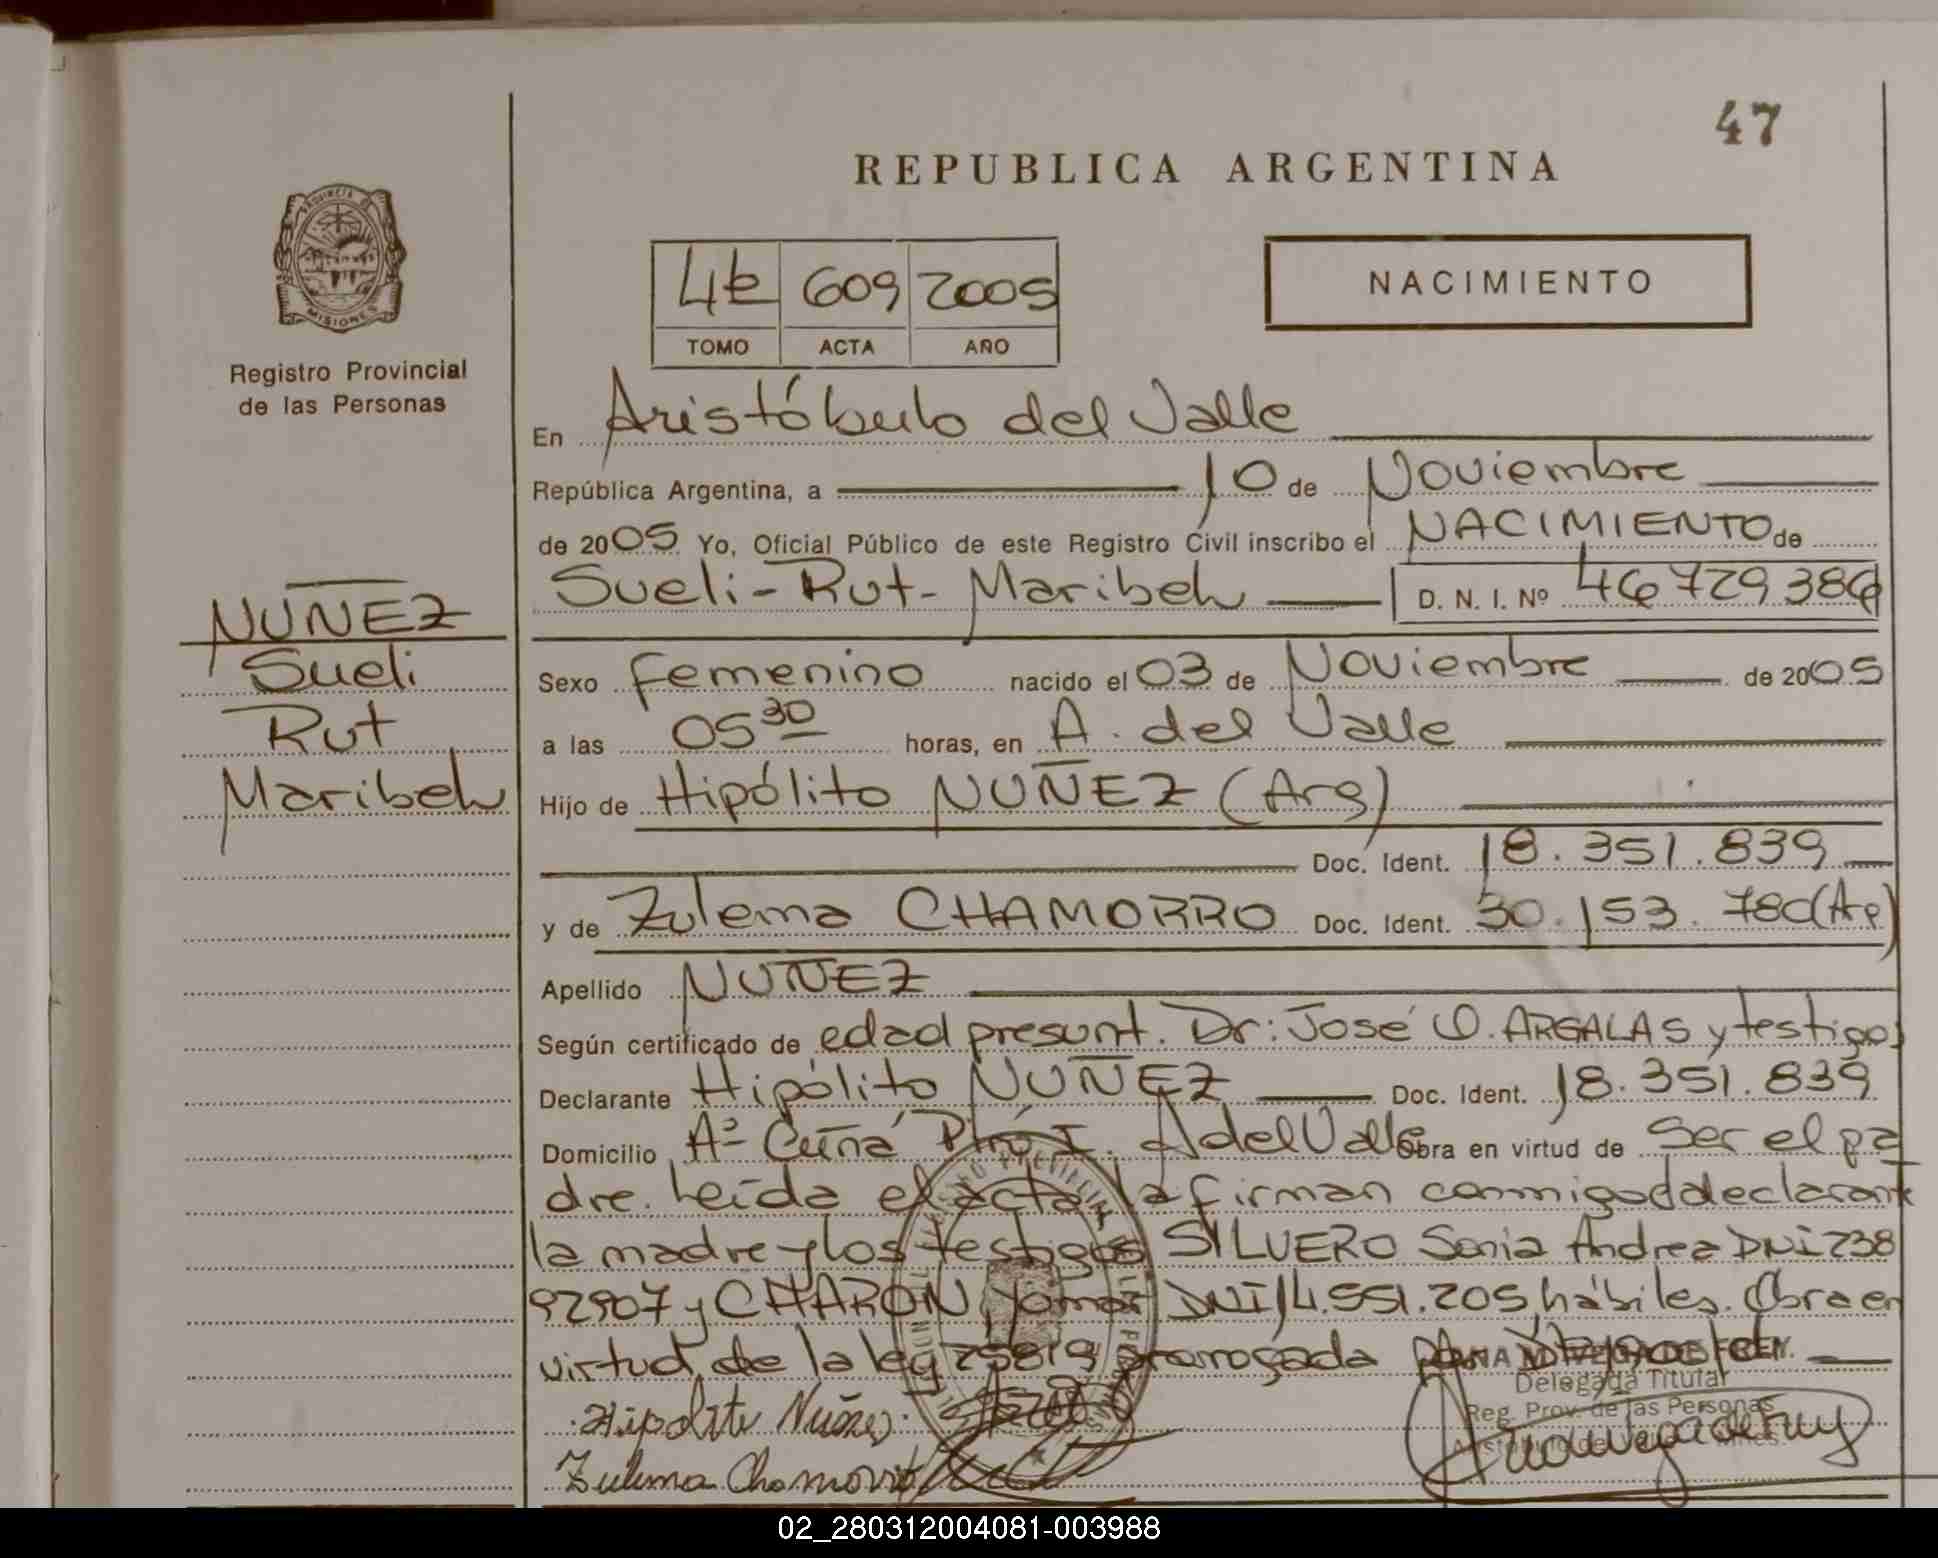 47
REPUBLICA ARGENTINA
PROVINCIA DE
MISIONES
Registro Provincial
de las Personas
4t 609 2005
TOMO ACTA AÑO
NACIMIENTO
En Aristóbulo del Valle
República Argentina, a 10 de Noviembre
de 2005 Yo, Oficial Público de este Registro Civil inscribo el NACIMIENTO de
Sueli-Rut-Maribel D. N. I. Nº 46729386
NUÑEZ
Sueli
Rut
Maribel
Sexo Femenino nacido el 03 de Noviembre de 2005
a las 05 30 horas, en A. del Valle
Hijo de Hipólito NUÑEZ (Arg)
Doc. Ident. 18.351.839
y de Zulema CHAMORRO Doc. Ident. 30.153.780 (Ar)
Apellido NUÑEZ
Según certificado de edad presunt. Dr: José O. ARGALAS y testigos
Declarante Hipólito NUÑEZ Doc. Ident. 18.351.839
Domicilio Aº Cuñá Pirú I. A del Valle Obra en virtud de Ser el pa
dre. Leída el acta la firman conmigo el declarant
la madre y los testigos SILVERO Sonia Andrea DNI 238
92907 y CHARON, Yomar DNI 14.551.205 hábiles. Obra en
virtud de la ley 25819 prorrogada
Delegada Titular
Hipolito Nuñez Reg. Prov. de las Personas
Zulema Chamorro
02_280312004081-003988